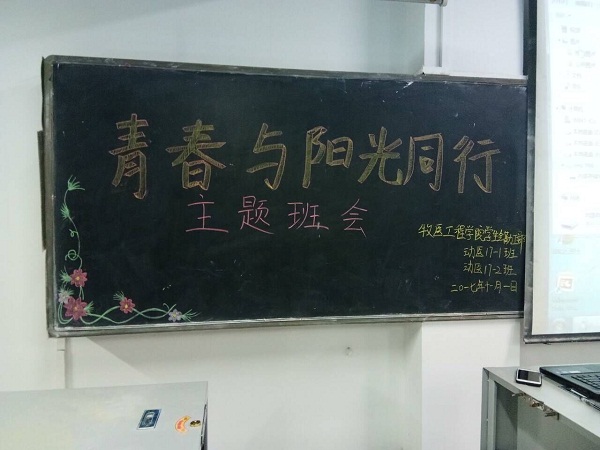 青春与阳光同行
主题班会
牧医工程学院学生会勤工部
动医17-1班
动医17-2班
二〇一七年十月一日